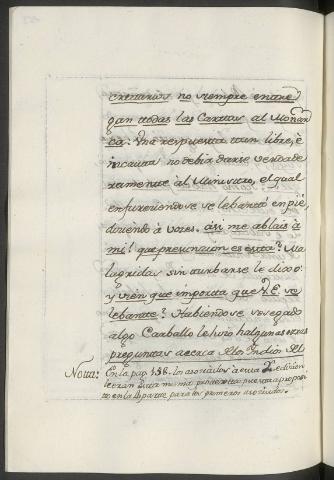 cretarios no siempre entre
gan todas las Cartas al Monar
ca. Una respuesta tan libre, è
incauta no debia darse verdade
ramente àl Ministro, el qual
enfureciendose se lebantò en piè,
diciendo à voces. àsi me ablais à
mi! que presuncion es esta? Ma
lagridas sin turbarse le dixo:
y vien que importa que V.E. se
lebante? Habiendose sosegado
algo Carballo le hizo halgunas otras
preguntas acerca
Nota: En la pag. 138. los asociados à esta edicion
misma
to, en la parte para los primeros asociados.